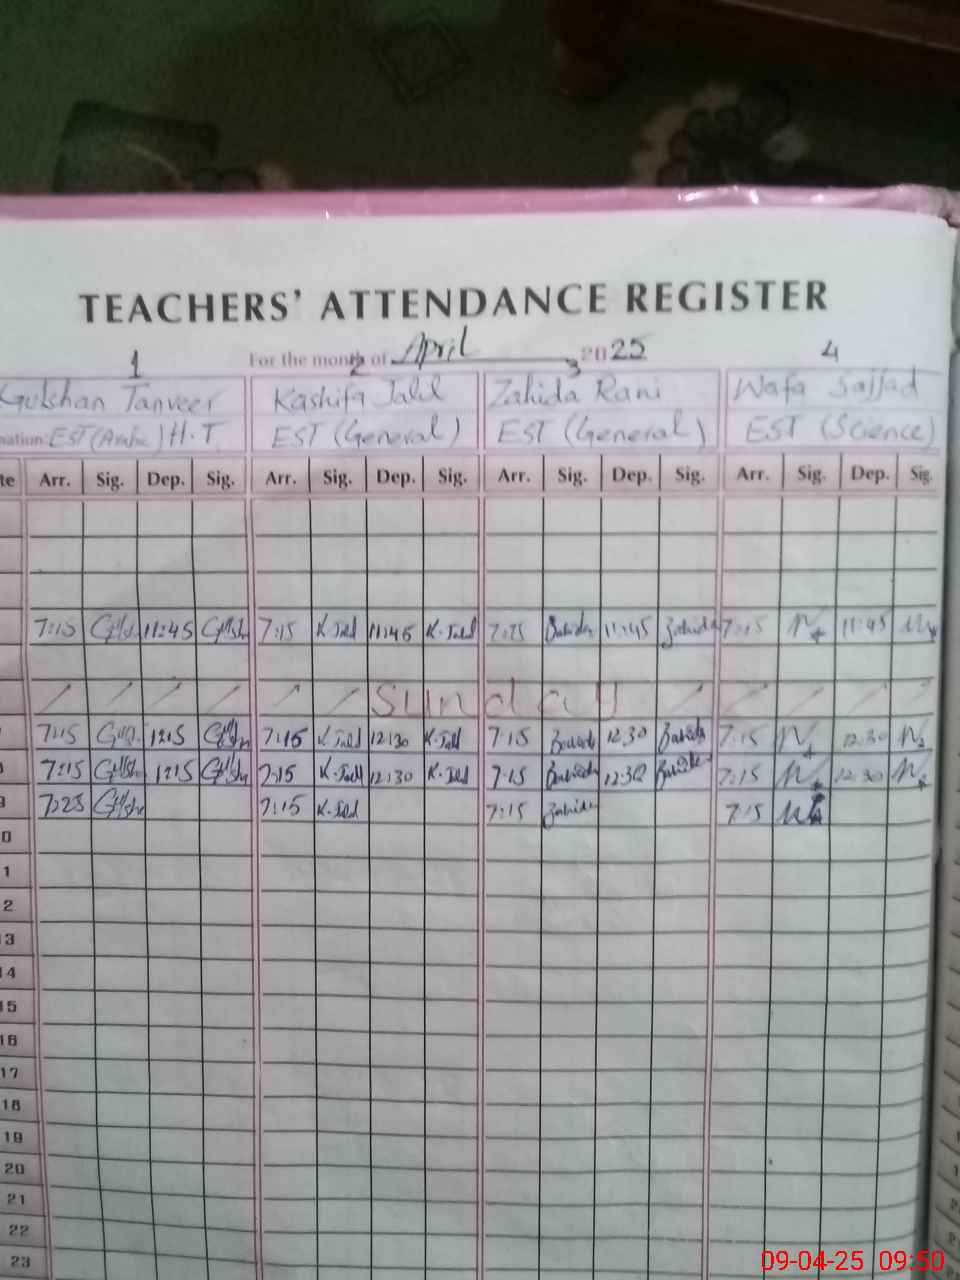 TEACHERS' ATTENDANCE REGISTER
For the month of April 2025
1 2 3 4
Gulshan Tanveer Kashifa Jalil Zahida Rani Wafa Sajjad
nation: EST (Arabic) H.T. EST (General) EST (General) EST (Science)
te Arr. Sig. Dep. Sig. Arr. Sig. Dep. Sig. Arr. Sig. Dep. Sig. Arr. Sig. Dep. Sig.
7:15 11:45 7:15 K.Jalil 11:45 K.Jalil 7:15 Zahida 11:45 Zahida 7:15 11:45
Sunday
7:15 7:15 K.Jalil 12:30 K.Jalil 7:15 Zahida 12:30 Zahida 7:15 12:30
7:15 7:15 K.Jalil 12:30 K.Jalil 7:15 Zahida 12:30 Zahida 7:15 12:30
9 7:25 7:15 K.Jalil 7:15 Zahida 7:15
0
1
2
13
14
15
16
17
18
19
20
21
22
23
09-04-25 09:50